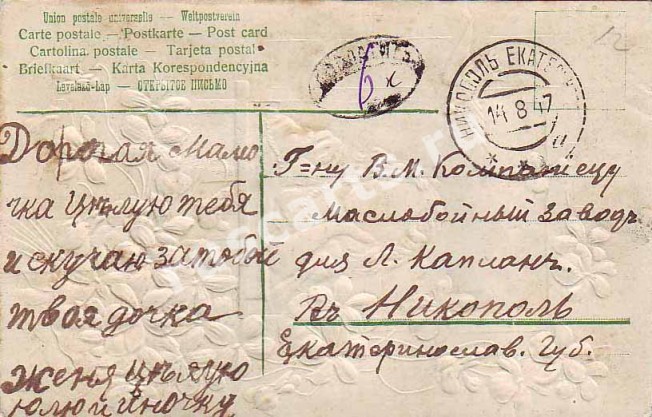 Union postale universelle — Weltpostverein
Carte postale — Postkarte — Post card
Cartolina postale — Tarjeta postal
Briefkaart — Karta Korespondencyjna
Levelező-Lap — ОТКРЫТОЕ ПИСЬМО
12
6 к
НИКОПОЛЬ ЕКАТЕ
14 8 17
Дорогая Мамо
чка цѣлую тебя
и скучаю за тобой
твоя дочка
Женя цѣлую
Юлю и Иночку
Г=ну В. М.
Маслобойный Заводъ
для Л. Капланъ.
Въ Никополь
Екатеринослав. Губ.